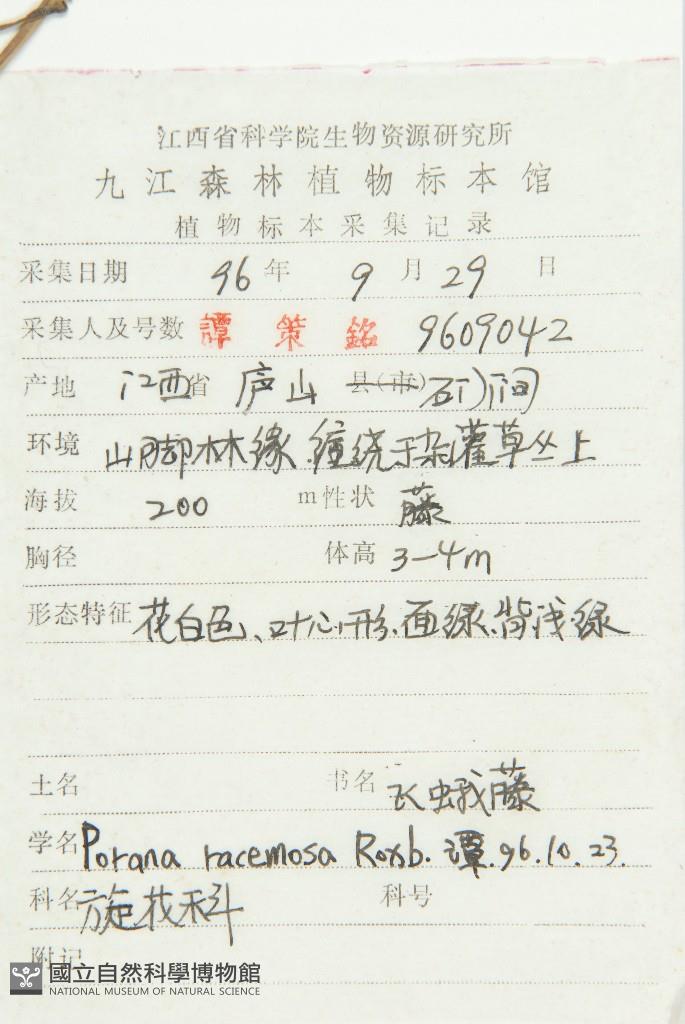 江西省科学院生物资源研究所
九江森林植物标本馆
植物标本采集记录
采集日期 96年 9月29日
采集人及号数 譚策銘 9609042
产地 江西省 庐山 县(市) 石门涧
环境 山脚林缘.缠绕于杂灌草丛上
海拔 200 m性状 藤
胸径 体高 3-4m
形态特征 花白色、叶心形.面绿.背浅绿
土名 书名 飞蛾藤
学名 Porana racemosa Roxb. 譚.96.10.23.
科名 旋花科 科号
附记
國立自然科學博物館
NATIONAL MUSEUM OF NATURAL SCIENCE